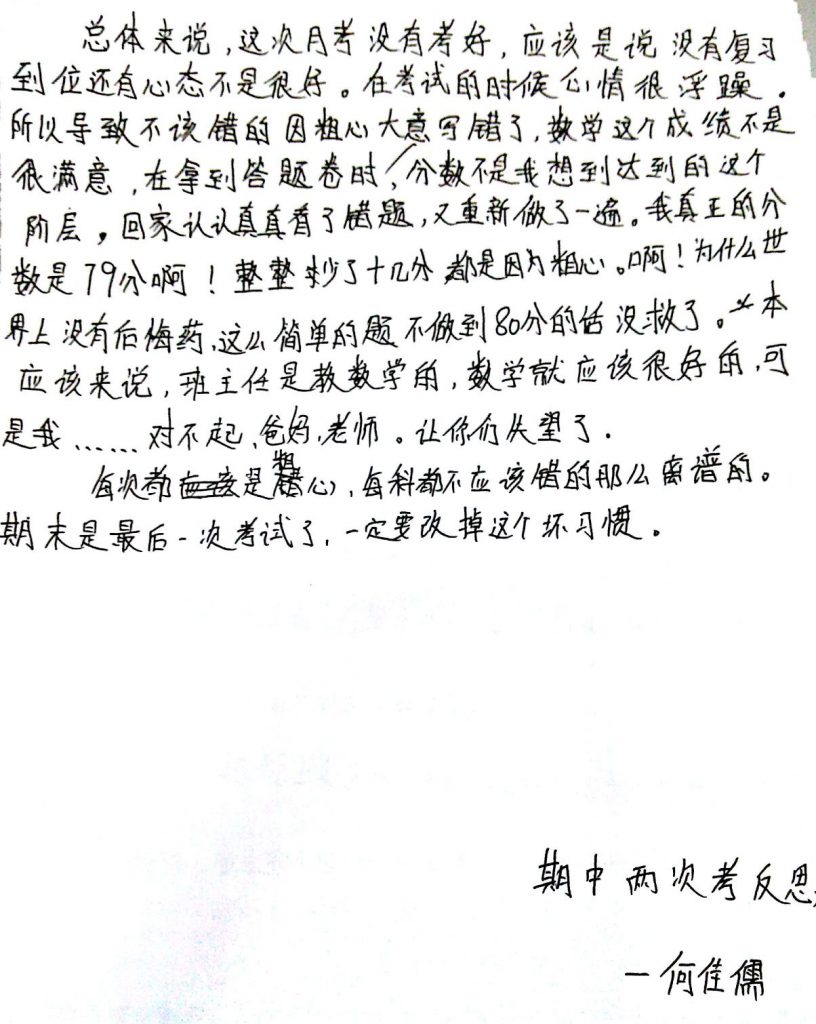 总体来说，这次月考没有考好，应该是说没有复习
到位还有心态不是很好。在考试的时候心情很浮躁。
所以导致不该错的因粗心大意写错了，数学这个成绩不是
很满意，在拿到答题卷时，分数不是我想到达到的这个
阶层，回家认认真真看了错题，又重新做了一遍。我真正的分
数是79分啊！整整少了十几分都是因为粗心。啊！为什么世
界上没有后悔药、这么简单的题不做到80分的话没救了。本
应该来说，班主任是教数学的，数学就应该很好的，可
是我……对不起，爸妈，老师。让你们失望了.
每次都是粗心，每科都不应该错的那么离谱的。
期末是最后一次考试了，一定要改掉这个坏习惯。
期中两次考反思
—何佳儒